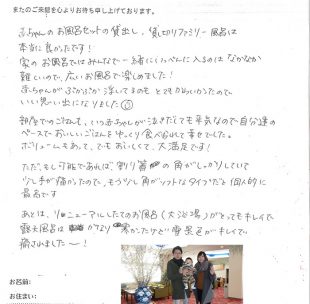 またのご来館を心よりお待ち申し上げております。
赤ちゃんのお風呂セットの貸出し、貸切りファミリー風呂は
本当に良かったです!
家のお風呂ではみんなで一緒にくつろぐに入るのはなかなか
難しいので、広いお風呂で楽しめました!
赤ちゃんがぷかぷか浮いてるのもとてもかわいかったので
いい思い出になりました
部屋でのごはんも、いつ赤ちゃんが泣きだしても平気なので自分達の
ペースでおいしいごはんをゆっくり食べられて幸せでした。
ボリュームもあって、とてもおいしくて、大満足です!
ただ、もし可能であれば、割り箸の角がしっかりしていて
少し手が痛かったので、もう少し角がソフトなタイプだと個人的に
最高です
あとは、リニューアルしたてのお風呂(大浴場)がとってもキレイで
露天風呂はかなり寒かったけど雪景色がキレイで
癒されました〜!
お名前:
お住まい: